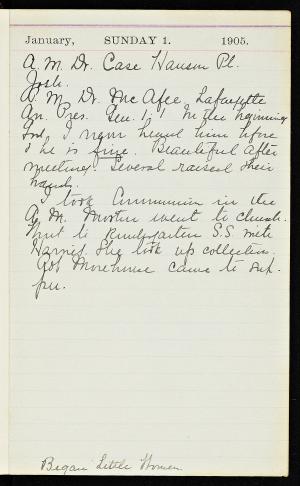 January, SUNDAY 1. 1905.
A. M. Dr. Case Hanson Pl.
Josh.
P. M. Dr. McAfee, Lafayette
Av. Pres. Gen. 1:1 In the beginning
God, I never heard him before
& he is fine. Beautiful after
meeting. Several raised their
hands.
I took Communion in the
A. M. Morton went to church.
Went to Kindergarten S.S. with
Harriet. She took up collection.
Rob Morehouse came to sup-
per.
Began Little Women